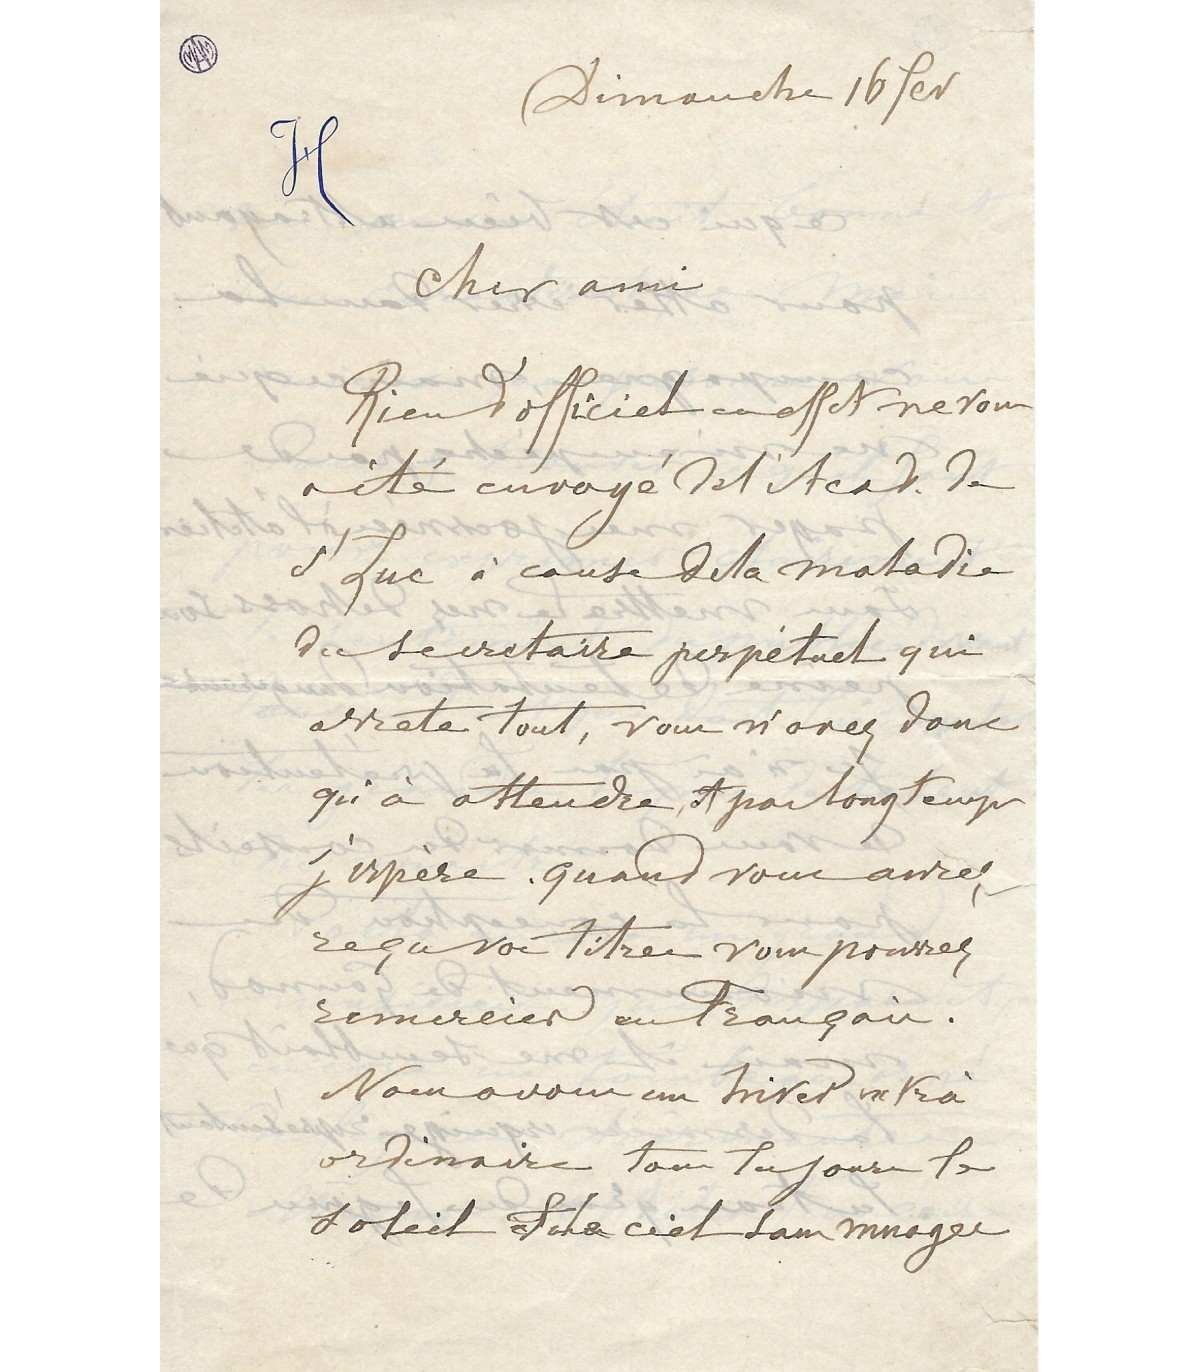 Dimanche 16 fev
H
Cher ami
Rien d'officiel en effet ne vous
a été envoyé de l'Acad. de
St Luc à cause de la maladie
du secretaire perpétuel qui
arrete tout, vous n'avez donc
qu'à attendre, et pas longtemps
j'espère. quand vous aurez
reçu vos titres vous pourrez
remercier en Français.
Nous avons un hiver extra
ordinaire tous les jours le
soleil et le ciel sans nuages